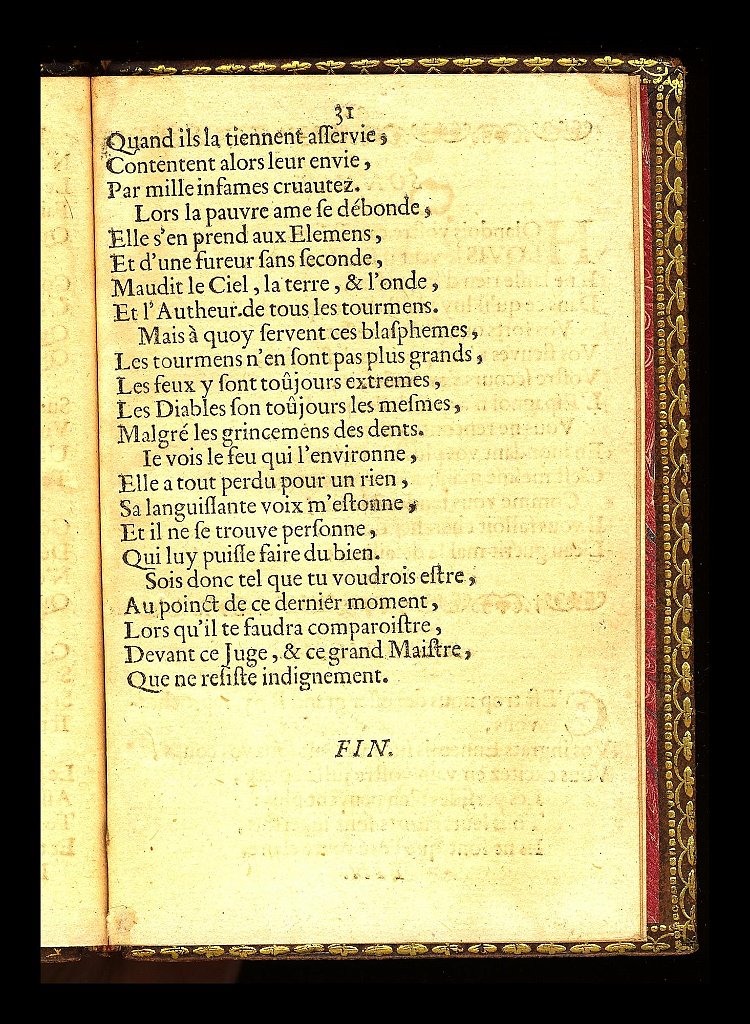 31
Quand ils la tiennent aſſervie,
Contentent alors leur envie,
Par mille infames cruautez.
Lors la pauvre ame ſe débonde,
Elle s'en prend aux Elemens,
Et d'une fureur ſans ſeconde,
Maudit le Ciel, la terre, & l'onde,
Et l'Autheur.de tous les tourmens.
Mais à quoy ſervent ces blaſphemes,
Les tourmens n'en ſont pas plus grands,
Les feux y ſont toûjours extremes,
Les Diables ſon toûjours les meſmes,
Malgré les grincemens des dents.
Ie vois le feu qui l'environne,
Elle a tout perdu pour un rien,
Sa languiſſante voix m'eſtonne,
Et il ne ſe trouve perſonne,
Qui luy puiſſe faire du bien.
Sois donc tel que tu voudrois eſtre,
Au poinct de ce dernier moment,
Lors qu'il te faudra comparoiſtre,
Devant ce Juge, & ce grand Maiſtre,
Que ne reſiſte indignement.
FIN.